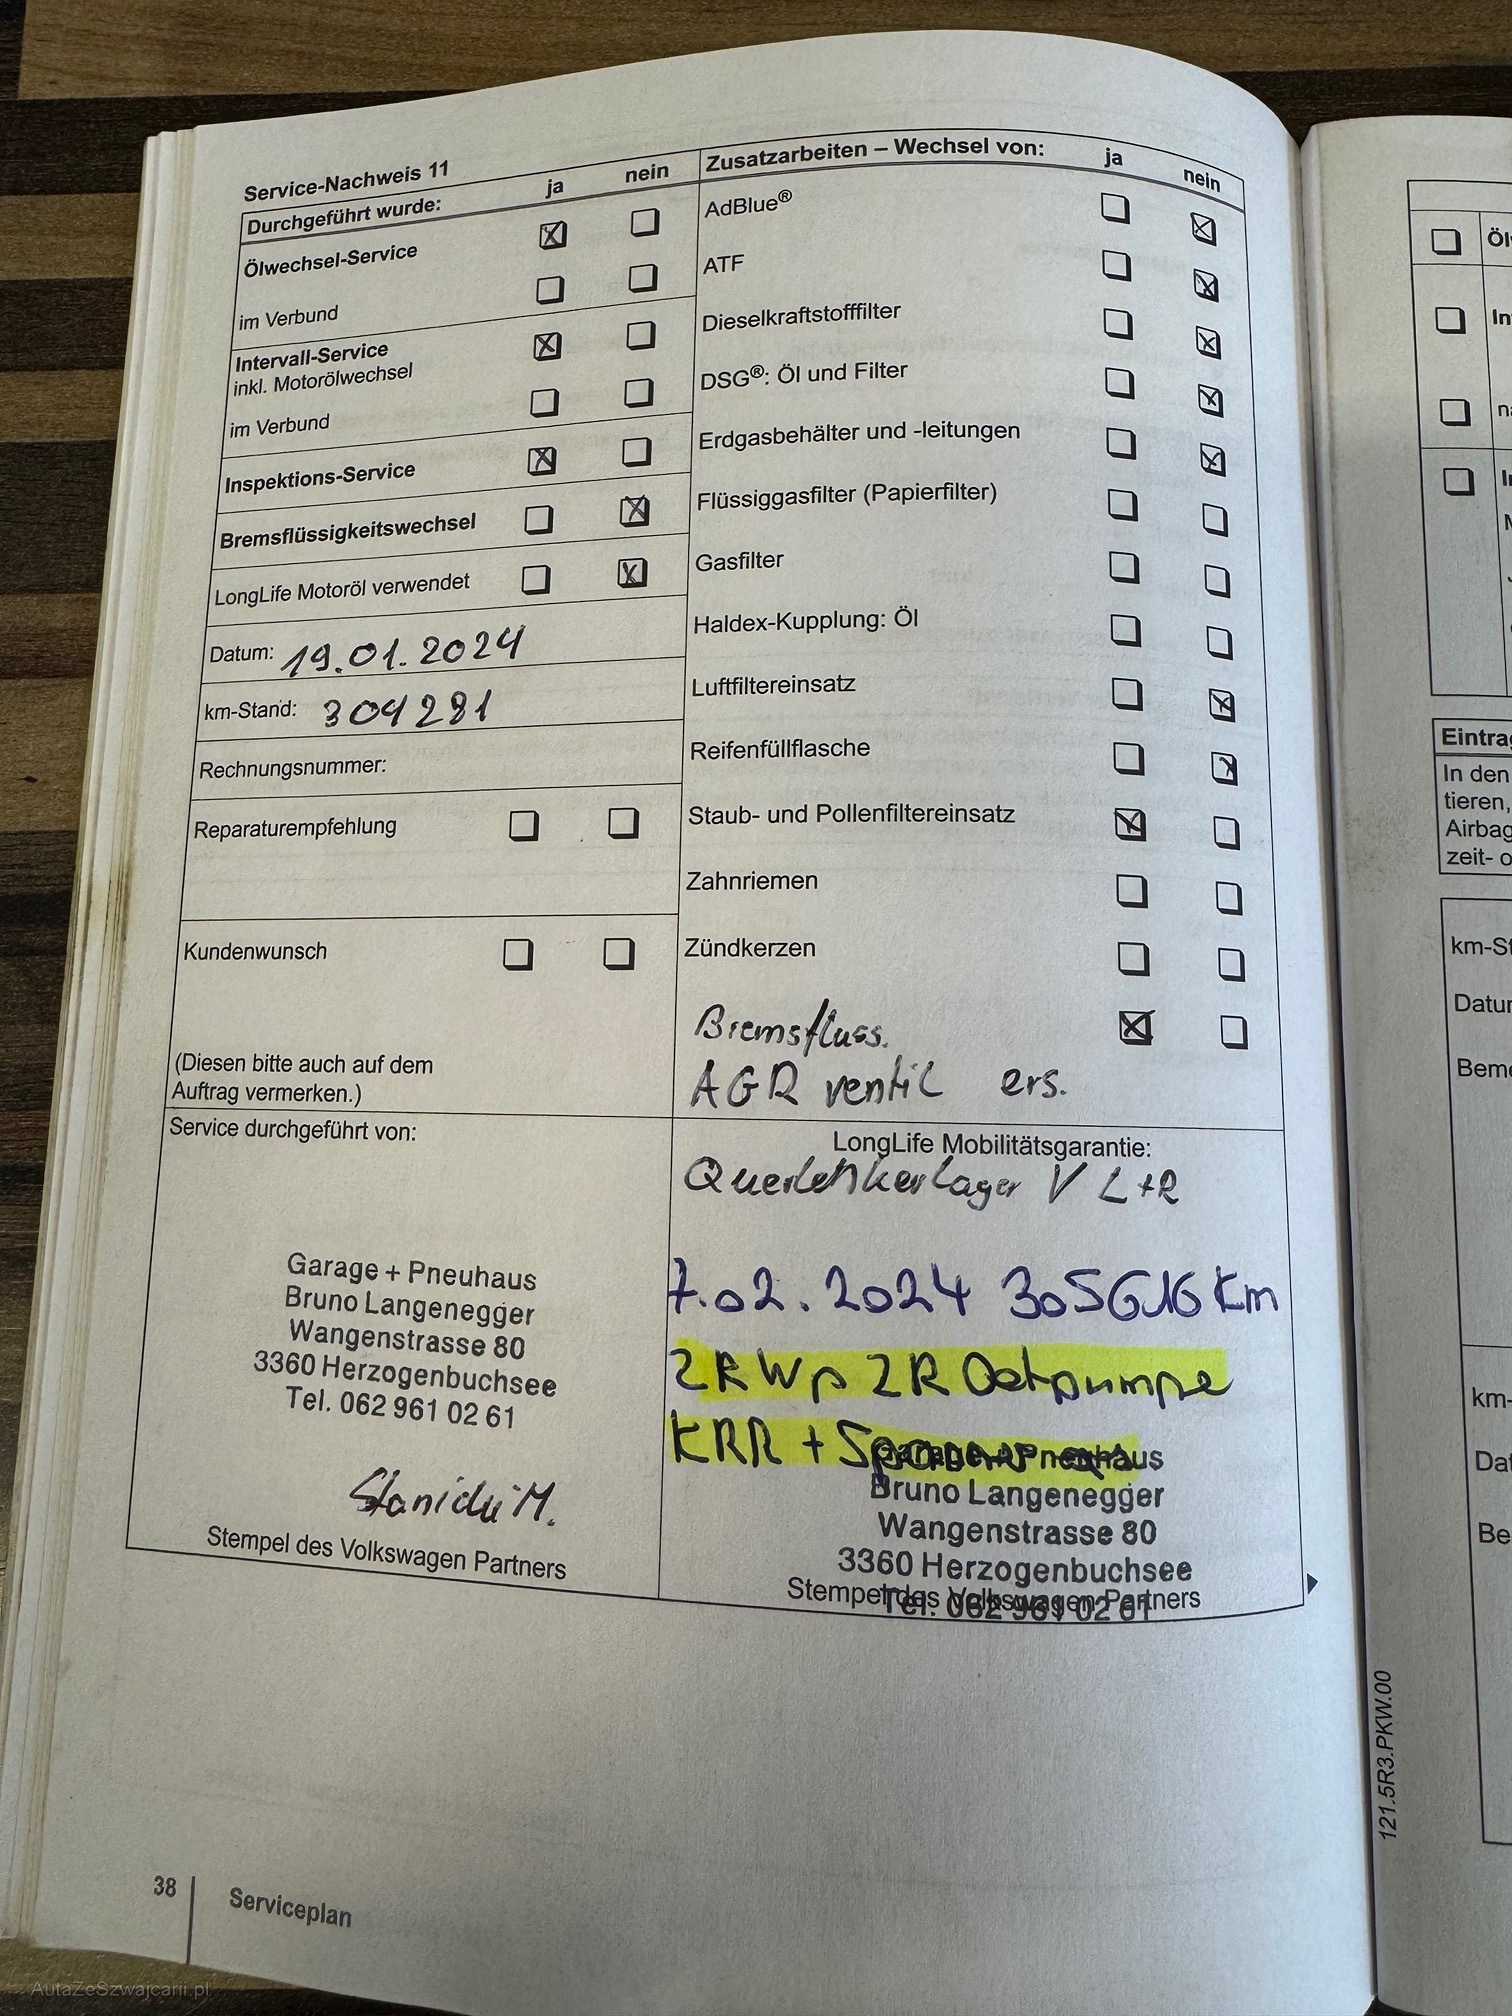 Service-Nachweis 11
Durchgeführt wurde: ja nein
Ölwechsel-Service
im Verbund
Intervall-Service
inkl. Motorölwechsel
im Verbund
Inspektions-Service
Bremsflüssigkeitswechsel
LongLife Motoröl verwendet
Datum: 19.01.2024
km-Stand: 304281
Rechnungsnummer:
Reparaturempfehlung
Kundenwunsch
(Diesen bitte auch auf dem
Auftrag vermerken.)
Zusatzarbeiten – Wechsel von: ja nein
AdBlue®
ATF
Dieselkraftstofffilter
DSG®: Öl und Filter
Erdgasbehälter und -leitungen
Flüssiggasfilter (Papierfilter)
Gasfilter
Haldex-Kupplung: Öl
Luftfiltereinsatz
Reifenfüllflasche
Staub- und Pollenfiltereinsatz
Zahnriemen
Zündkerzen
Bremsfluss.
AGR ventil ers.
Service durchgeführt von:
Garage + Pneuhaus
Bruno Langenegger
Wangenstrasse 80
3360 Herzogenbuchsee
Tel. 062 961 02 61
Stempel des Volkswagen Partners
LongLife Mobilitätsgarantie:
Querlenkerlager V L+R
7.02.2024 305616 Km
ZR Wp ZR
KRR +
Garage + Pneuhaus
Bruno Langenegger
Wangenstrasse 80
3360 Herzogenbuchsee
Stempel des Volkswagen Partners
Tel. 062 961 02 61
38 Serviceplan
121.5R3.PKW.00
Eintrag
In den
tieren,
Airbag
zeit- o
km-St
Datum
Beme
km-
Dat
Be
AutaZeSzwajcarii.pl